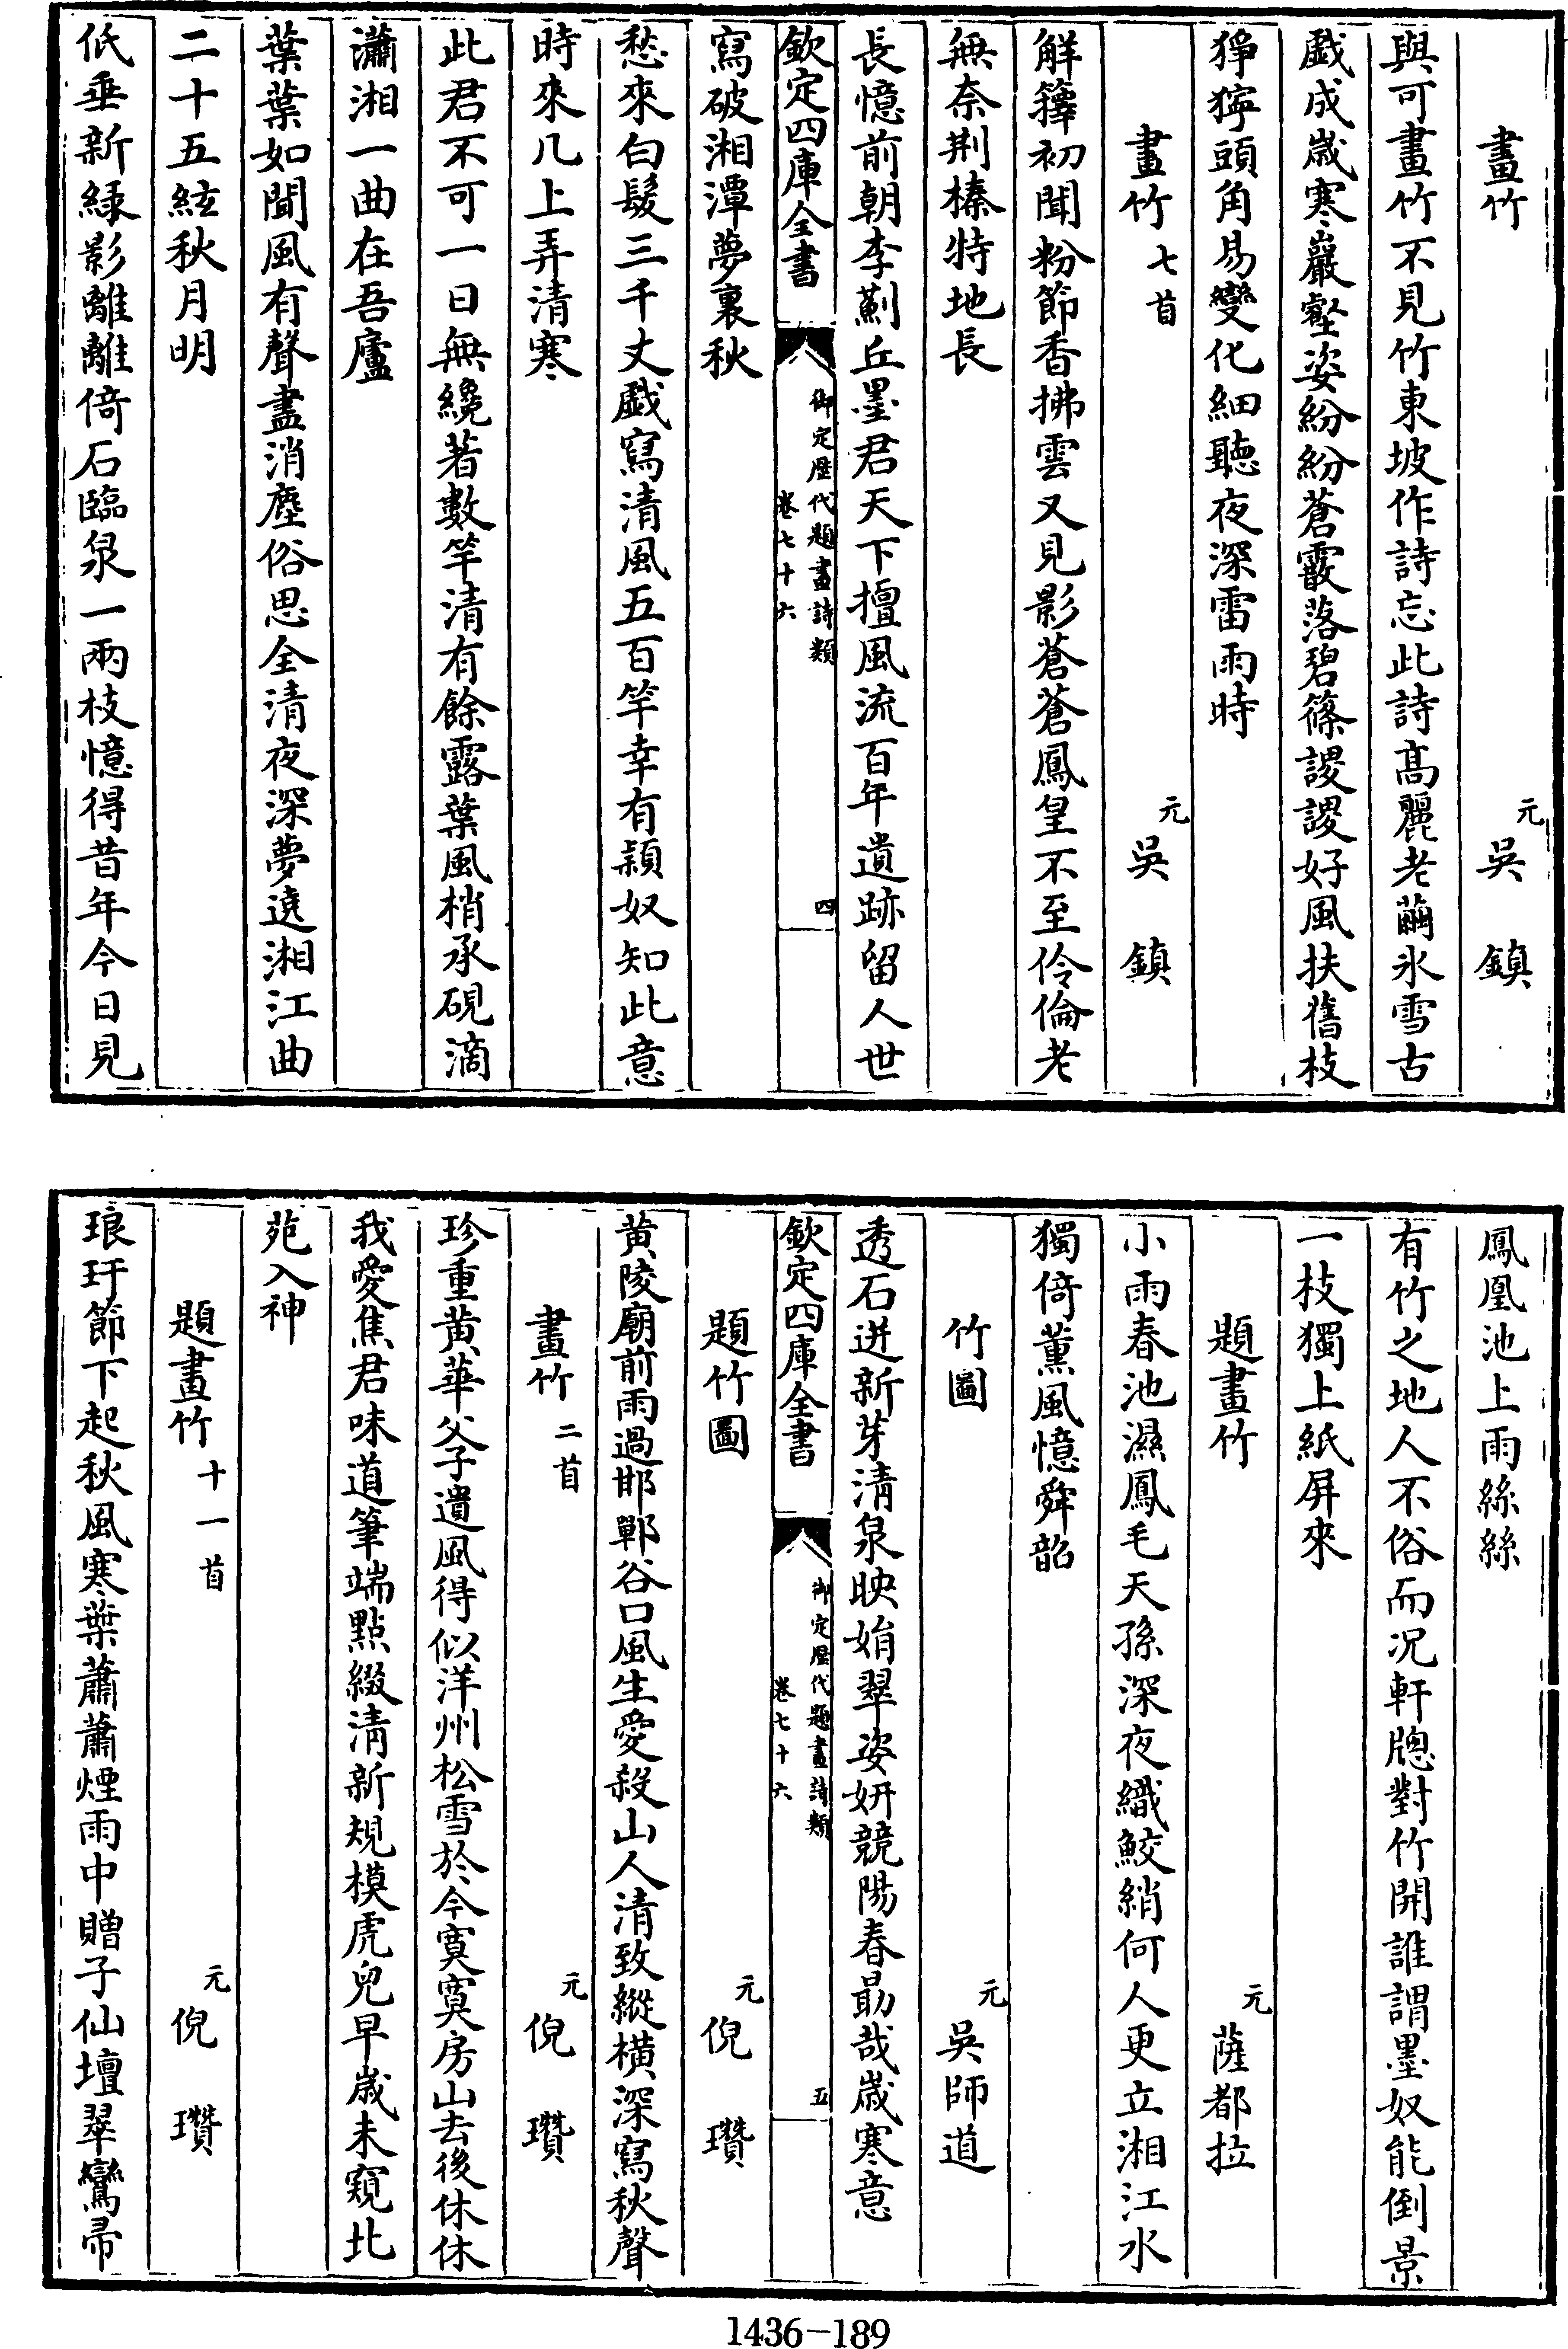 畫竹　元　吳鎮
與可畫竹不見竹東坡作詩忘此詩髙麗老繭氷雪古
戯成歳寒巖壑姿紛紛蒼霰落碧篠謖謖好風扶舊枝
猙獰頭角易變化細聽夜深雷雨時
畫竹七首　元　吳鎮
觧籜初聞粉節香拂雲又見影蒼蒼鳳皇不至伶倫老
無奈荆榛特地長
長憶前朝李薊丘墨君天下擅風流百年遺跡留人世
欽定四庫全書　御定歴代題畫詩類　卷七十六　四
寫破湘潭夢裏秋
愁來白髮三千丈戯寫清風五百竿幸有穎奴知此意
時來几上弄清寒
此君不可一日無纔著數竿清有餘露葉風梢承硯滴
瀟湘一曲在吾廬
葉葉如聞風有聲盡消塵俗思全清夜深夢遶湘江曲
二十五絃秋月明
低垂新緑影離離倚石臨泉一兩枝憶得昔年今日見
鳳凰池上雨絲絲
有竹之地人不俗而况軒牕對竹開誰謂墨奴能倒景
一枝獨上紙屏來
題畫竹　元　薩都拉
小雨春池濕鳳毛天孫深夜織鮫綃何人更立湘江水
獨倚薰風憶舜韶
竹圖　元　吳師道
透石迸新芽清泉映娟翠姿妍競陽春勗哉歳寒意
欽定四庫全書　御定歴代題畫詩類　卷七十六　五
題竹圖　元　倪瓚
黄陵廟前雨過邯鄲谷口風生愛殺山人清致縱横深寫秋聲
畫竹二首　元　倪瓚
珍重黄華父子遺風得似洋州松雪於今寞寞房山去後休休
我愛焦君味道筆端點綴清新規模虎兒早歳未窺北
苑入神
題畫竹十一首　元　倪瓚
琅玕節下起秋風寒葉蕭蕭煙雨中贈子仙壇翠鸞帚
1436-189